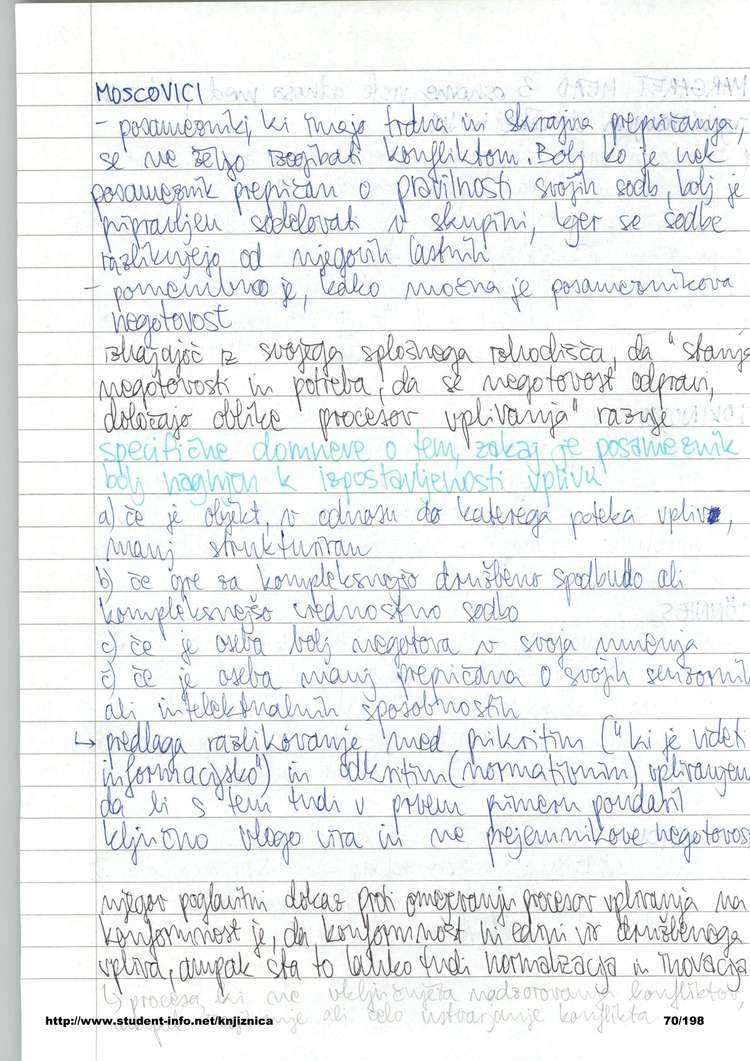 MOSCOVICI
- posamezniki, ki imajo trdna in skrajna prepričanja,
se ne želijo izogibati konfliktom. Bolj ko je nek
posameznik prepričan o pravilnosti svojih sodb, bolj je
pripravljen sodelovati v skupini, kjer se sodbe
razlikujejo od njegovih lastnih
- pomembno je, kako močna je posameznikova
negotovost
izhajajoč iz svojega splošnega izhodišča, da "stanje
negotovosti in potreba, da se negotovost odpravi,
določajo oblike procesov vplivanja" razvije
specifične domneve o tem, zakaj je posameznik
bolj nagnjen k izpostavljenosti vplivu
a) če je objekt, v odnosu do katerega poteka vpliv,
manj strukturiran
b) če gre za kompleksnejšo družbeno spodbudo ali
kompleksnejšo vrednostno sodbo
c) če je oseba bolj negotova v svoja mnenja
č) če je oseba manj prepričana o svojih senzornih
ali intelektualnih sposobnostih
↳ predlaga razlikovanje med prikritim ("ki je videti
informacijsko") in odkritim (normativnim) vplivanjem
da bi s tem tudi v prvem primeru poudaril
ključno vlogo vira in ne prejemnikove negotovosti
njegov poglavitni dokaz proti omejevanju procesov vplivanja na
konformnost je, da konformnost ni edini vir družbenega
vpliva, ampak sta to lahko tudi normalizacija in inovacija
↳ procesa ki ne vključujeta nadzorovanja konfliktov,
ampak ali celo ustvarjanje konflikta
http://www.student-info.net/knjiznica 70/198